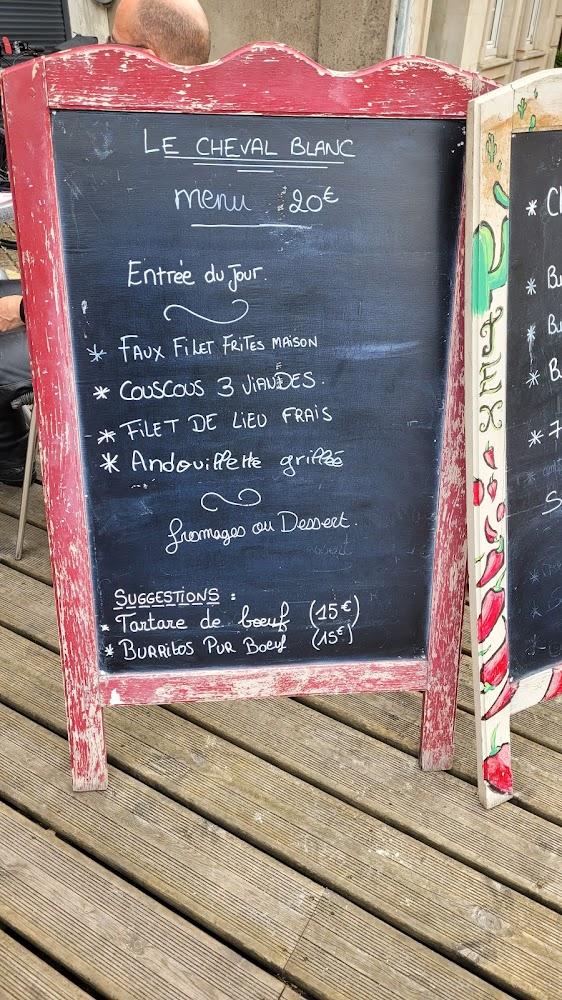 LE CHEVAL BLANC
menu 20€
Entrée du Jour.
* FAUX FILET FRITES MAISON
* COUSCOUS 3 VIANDES.
* FILET DE LIEU FRAIS
* Andouillette grillée
fromages ou Dessert.
SUGGESTIONS :
* Tartare de boeuf (15€)
* BURRITOS PUR BOEUF (15€)
TEX
* C
* Bu
* Bu
* B
* 7
S